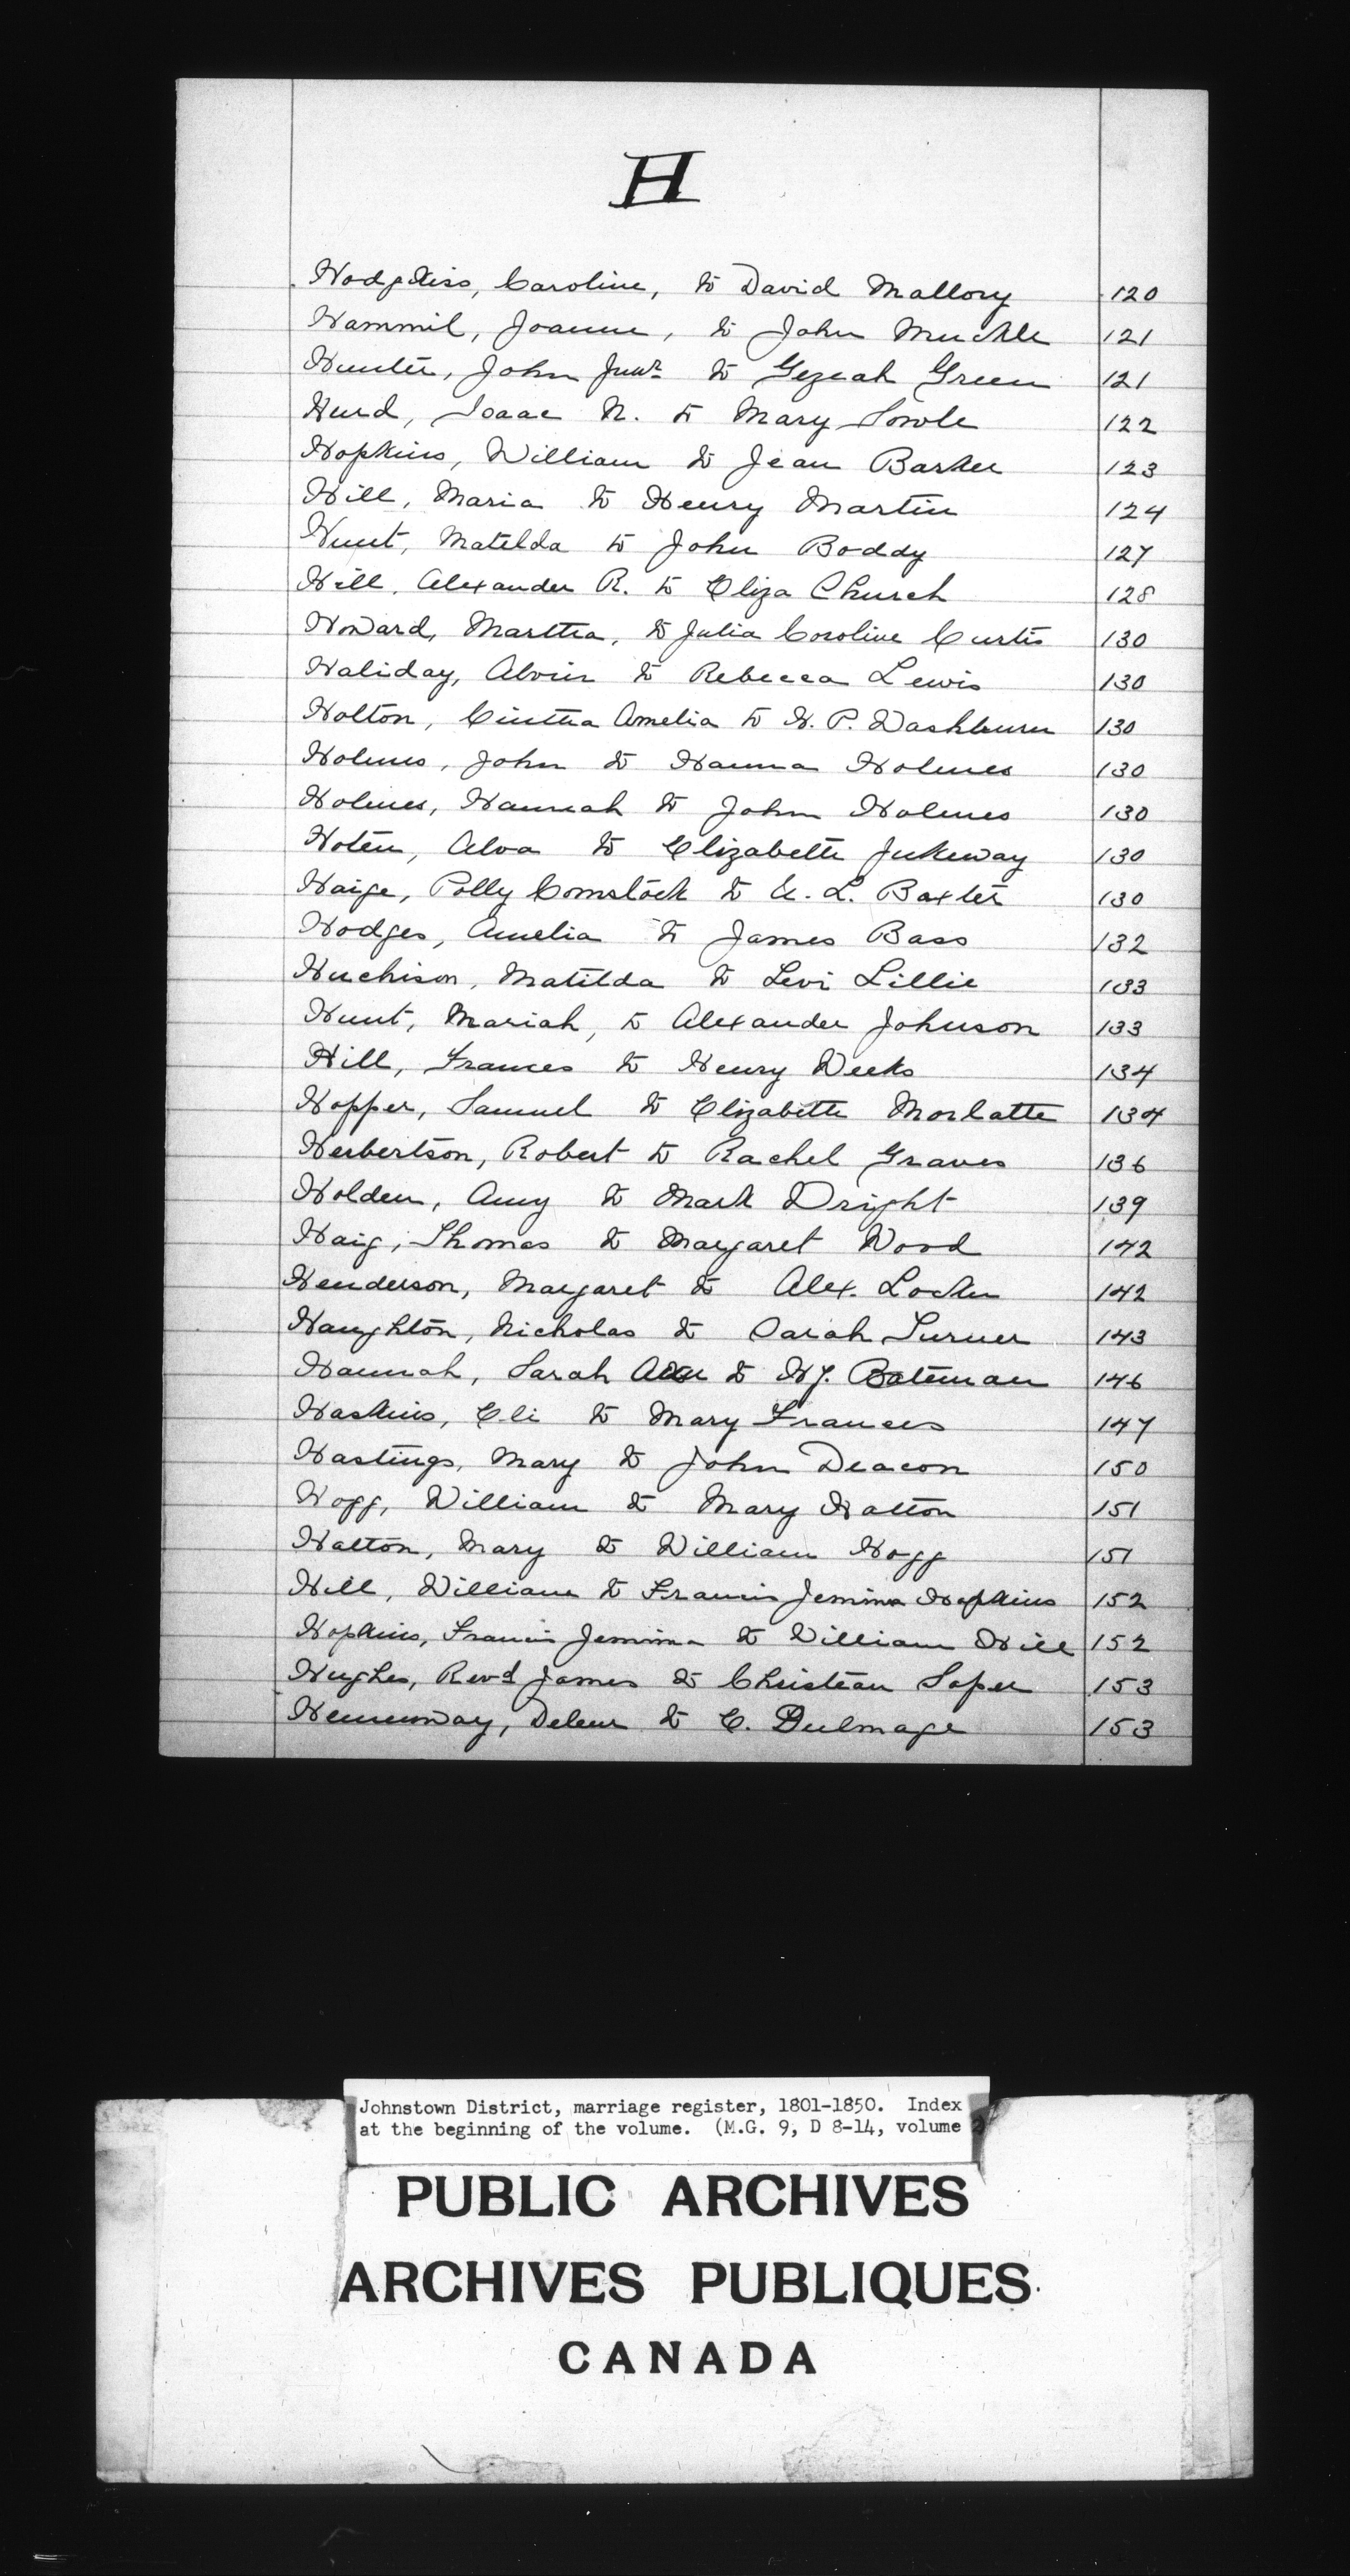 H
Hodgkiss, Caroline, to David Mallory 120
Hammil, Joanne, to John Muckle 121
Hunter, John Junr to Gezeah Green 121
Hurd, Isaac N. to Mary Sowle 122
Hopkins, William to Jean Barker 123
Hill, Maria to Henry Martin 124
Hunt, Matilda to John Boddy 127
Hill, Alexander R. to Eliza Church 128
Howard, Martha, to Julia Coroline Curtis 130
Haliday, Alvin to Rebecca Lewis 130
Holton, Cintha Amelia to H. P. Washburn 130
Holmes, John to Hanna Holmes 130
Holmes, Hannah to John Holmes 130
Hoten, Alva to Elizabeth Jukeway 130
Haige, Polly Comstock to E. L. Baxter 130
Hodges, Amelia to James Bass 132
Huchison, Matilda to Levi Lillie 133
Hunt, Mariah, to Alexander Johnson 133
Hill, Frances to Henry Weeks 134
Hopper, Samuel to Elizabeth Morlatte 134
Herbertson, Robert to Rachel Graves 136
Holden, Amy to Mark Wright 139
Haig, Thomas to Margaret Wood 142
Henderson, Margaret to Alex. Locker 142
Haughton, Nicholas to Sarah Turner 143
Hannah, Sarah Ann to H J. Bateman 146
Haskins, Eli to Mary Frances 147
Hastings, Mary to John Deacon 150
Hogg, William to Mary Hatton 151
Hatton, Mary to William Hogg 151
Hill, William to Francis Jemima Hopkins 152
Hopkins, Francis Jemima to William Hill 152
Hughes, Revd James to Christian Soper 153
Hemenway, to C. Dulmage 153
Johnstown District, marriage register, 1801-1850. Index
at the beginning of the volume. (M.G. 9, D 8-14, volume 2)
PUBLIC ARCHIVES
ARCHIVES PUBLIQUES
CANADA